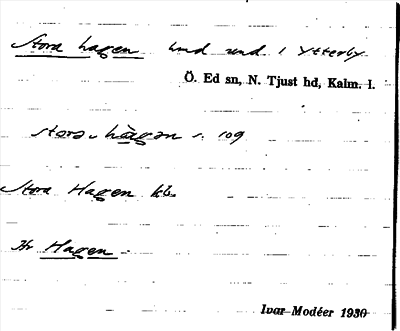 Stora hagen lund und. i Ytterby
Ö. Ed sn, N. Tjust hd, Kalm. l.
stora hagen s. 109
Stora Hagen kb.
Hr Hagen
Ivar Modéer 1930